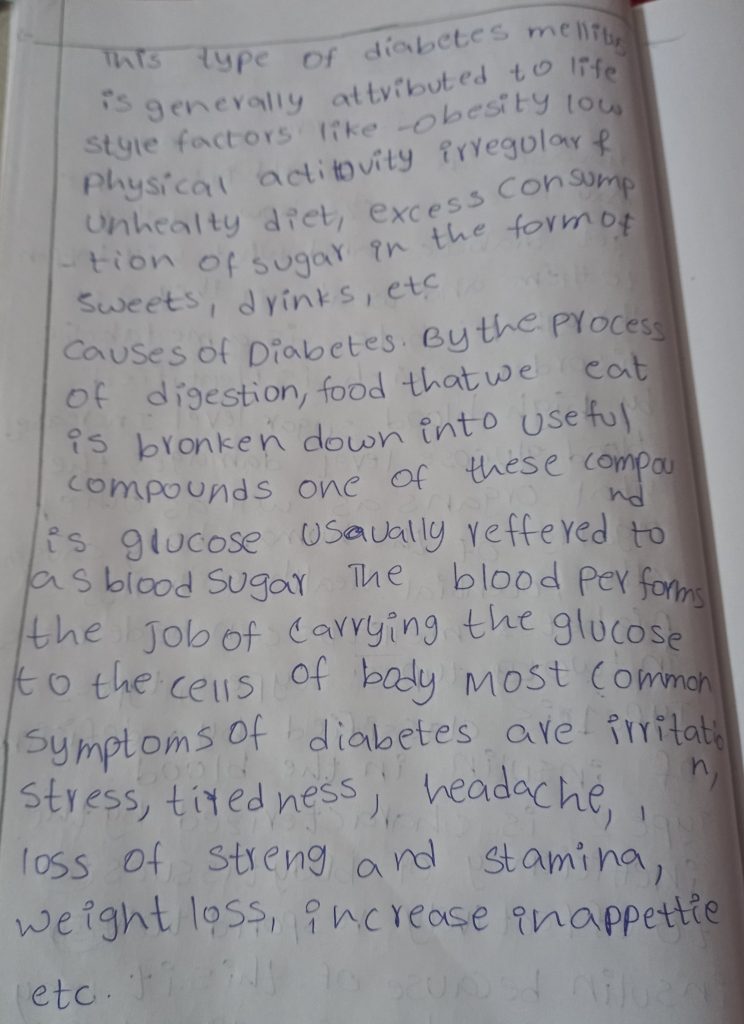 This type of diabetes mellitus
is generally attributed to life
style factors like -obesity low
physical actitovity irregular &
unhealty diet, excess consump
-tion of sugar in the form of
sweets, drinks, etc
causes of Diabetes. By the process
of digestion, food that we eat
is bronken down into useful
compounds one of these compou
nd
is glucose usavally reffered to
as blood sugar The blood performs
the job of carrying the glucose
to the cells of body most common
symptoms of diabetes are irritatio
n,
stress, tiredness, headache, ,
loss of streng and stamina,
weight loss, increase in appettie
etc.